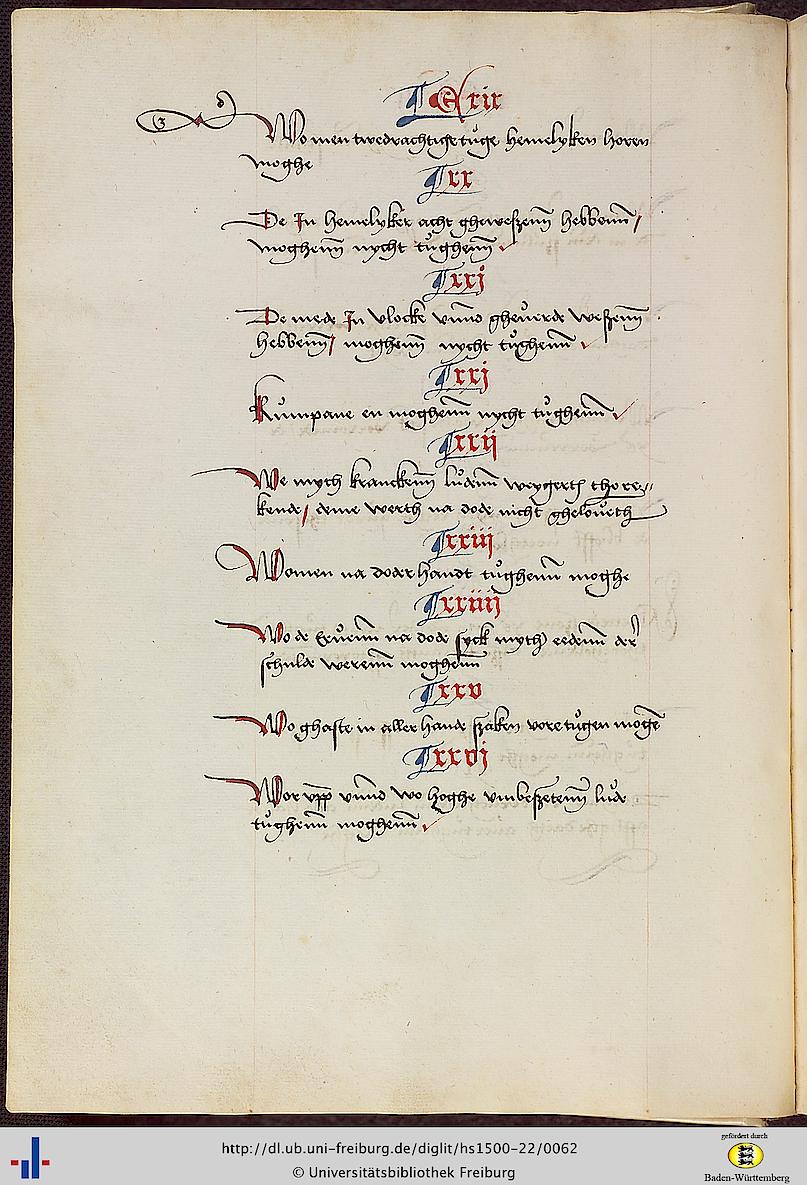 ¶ A xix
Wo men twedrachtige tuͦge hemelyken horen
moghe
¶ xx
De In hemelyker acht gheweszenn hebbenn /
moghenn nycht tuͦghenn
¶ xxj
De mede In vlocke vnnd gheuͦerde weszenn
hebbenn / moghenn nycht tuͦghenn
¶ xxj
Kuͦmpane en moghenn nycht tuͦghenn
¶ xxij
We myth kranckenn luͦdenn weygerth tho re=
kende / deme werth na dode nicht gheloͤueth
¶ xxiij
Wo men na doder handt tuͦghenn moghe
¶ xxiiij
Wo de Eruͦenn na dode syck myth eedenn der
schulde werenn moghenn
¶ xxv
Wo ghaste in allerhande szaken vortuͦgen mogen
¶ xxvj
Wor vpp vnnd wo hoghe vmbeszetenn luͦde
tuͦghenn moghenn
http://dl.ub.uni-freiburg.de/diglit/hs1500-22/0062
© Universitätsbibliothek Freiburg
gefördert durch
Baden-Württemberg